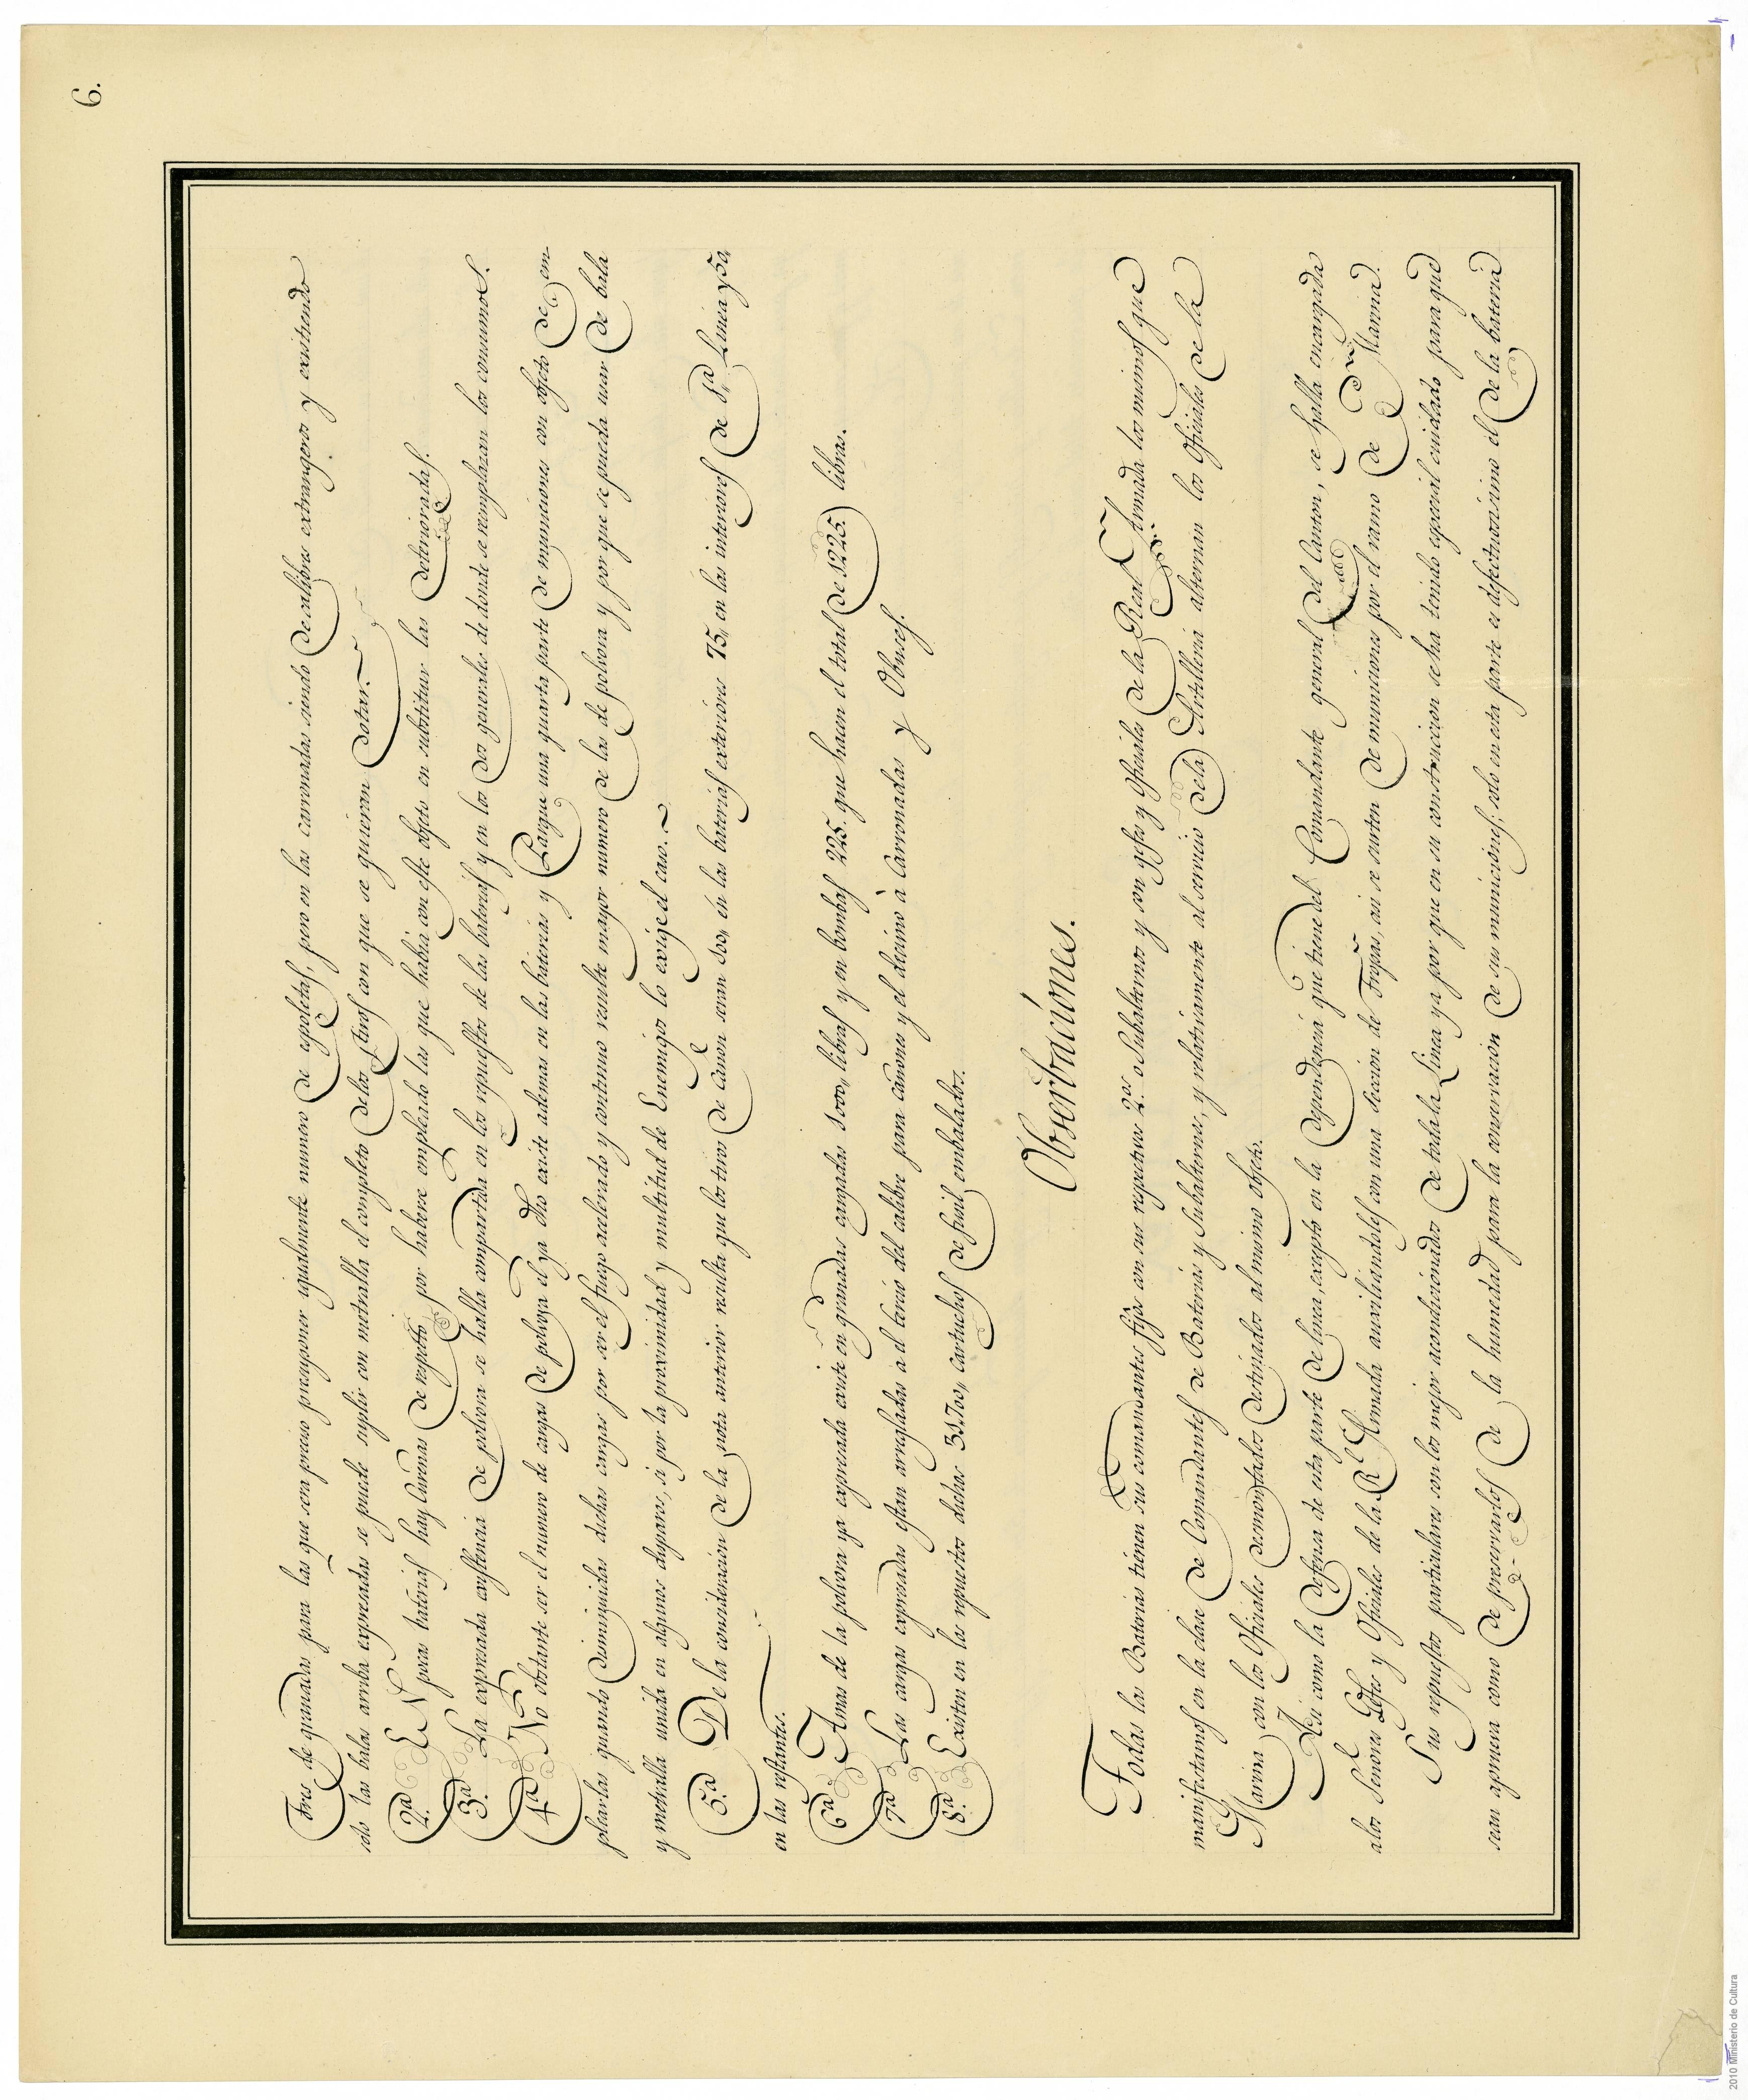 6.
tres de granadas para las que sera preciso presuponer igualmente numero de espoletas, pero en las carronadas siendo de calibres extrangeros y existiendo
solo las balas arriba expresadas se puede suplir con metralla el completo de los tiros con que se quieran dotar.
2ª En pocas baterias hay Cureñas de repto. por haberse empleado las que habia con este objeto en substituir las deterioradas.
3ª La expresada existencia de polvora se halla compartida en los repuestos de las baterias y en los dos generales de donde se remplazan los consumos.
4ª No obstante ser el numero de cargas de polvora el ya dho existe ademas en las baterias y Parque una quarta parte de municiones con objeto de em
plearlas quando disminuidas dichas cargas por ser el fuego acelerado y continuo resulte mayor numero de las de polvora y por que se pueda usar de bala
y metralla unida en algunos disparos, si por la proximidad y multitud de Enemigos lo exige el caso.
5ª De la consideracion de la nota anterior resulta que los tiros de cañon seran 100,, en las baterias exteriores 75,, en las interiores de 1ª Linea y 50,,
en las restantes.
6ª Amas de la polvora ya expresada existe en granadas cargadas 1000,, libras y en bombas 225. que hacen el total de 1225. libras.
7ª Las cargas expresadas estan arregladas a el tercio del calibre para cañones y el decimo à Carronadas y Obuses.
8ª Existen en los repuestos dichos 31.700,, cartuchos de fusil embalados.
Obserbaciónes.
Todas las Baterias tienen sus comandantes fijos con sus respectivos 2.os o Subalternos y son gefes y Oficiales de la Real Armada los mismos que
manifestamos en la clase de Comandantes de Baterias y Subalternos, y relativamente al servicio de la Artilleria alternan los Oficiales de la
Marina con los Oficiales desmontados destinados al mismo objeto.
Asi como la defensa de esta parte de linea, excepto en la dependencia que tiene del Comandante general del Canton, se halla encargada
a los Señores Gefes y Oficiales de la Rl. Armada auxiliandoles con una seccion de Tropas, asi se surten de municiones por el ramo de Marina.
Sus repuestos particulares son los mejor acondicionados de toda la Linea ya por que en su construccion se ha tenido especial cuidado para que
sean apmera como de preservarlos de la humedad para la conservacion de sus municiones; solo en esta parte es defectuosisimo el de la bateria
2010 Ministerio de Cultura